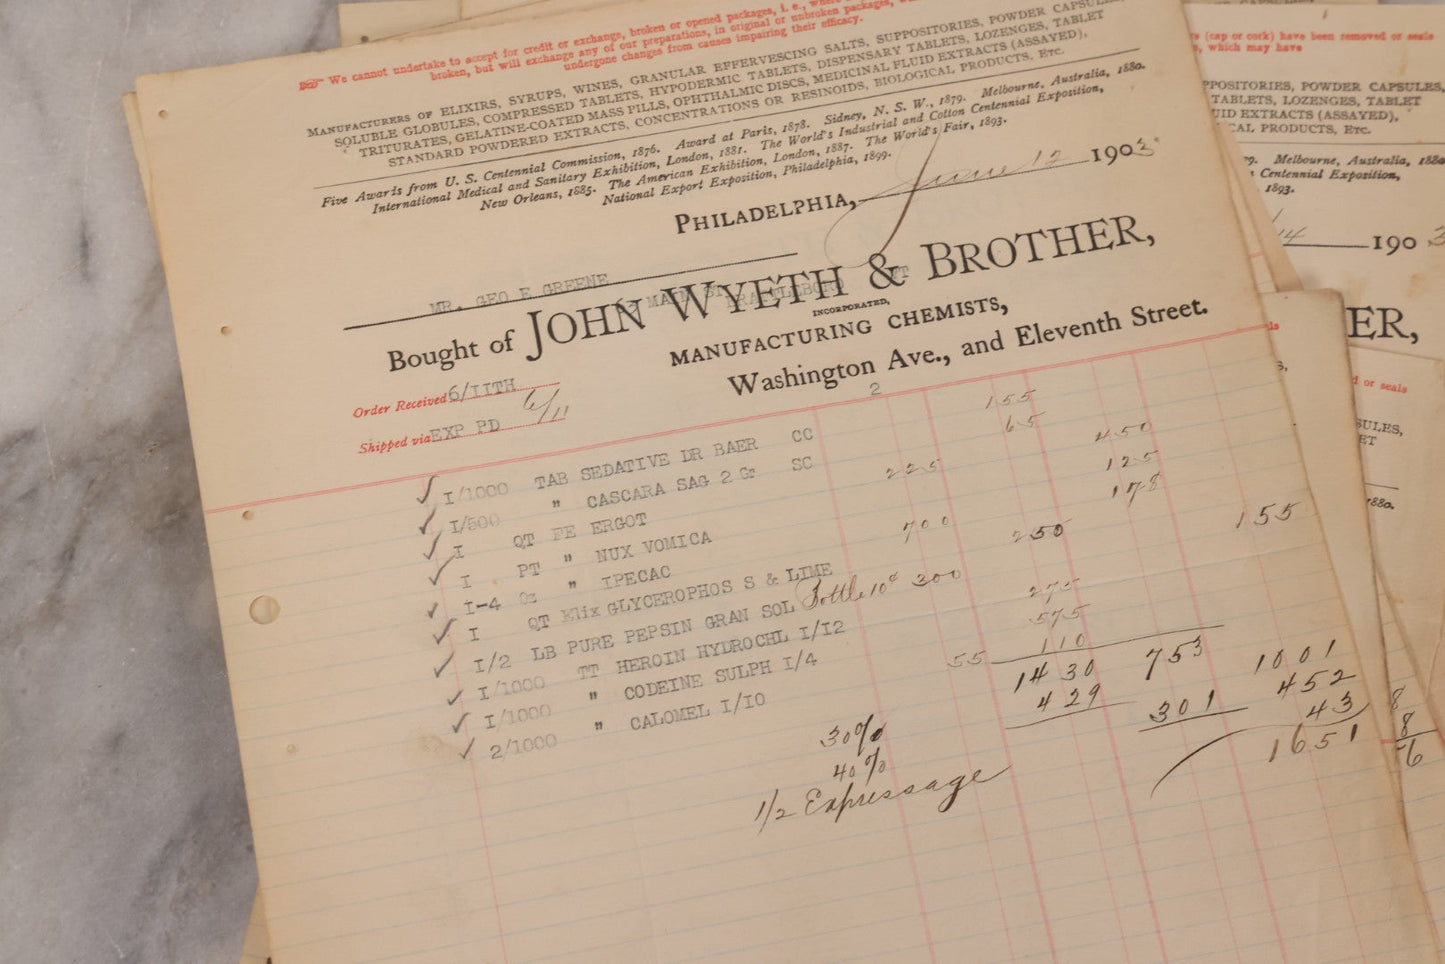 We cannot undertake to accept for credit or exchange, broken or opened packages, i. e., where
broken, but will exchange any of our preparations, in original or unbroken packages,
undergone changes from causes impairing their efficacy.
MANUFACTURERS OF ELIXIRS, SYRUPS, WINES, GRANULAR EFFERVESCING SALTS, SUPPOSITORIES, POWDER CAPSULES,
SOLUBLE GLOBULES, COMPRESSED TABLETS, HYPODERMIC TABLETS, DISPENSARY TABLETS, LOZENGES, TABLET
TRITURATES, GELATINE-COATED MASS PILLS, OPHTHALMIC DISCS, MEDICINAL FLUID EXTRACTS (ASSAYED),
STANDARD POWDERED EXTRACTS, CONCENTRATIONS OR RESINOIDS, BIOLOGICAL PRODUCTS, ETC.
Five Awards from U. S. Centennial Commission, 1876. Award at Paris, 1878. Sidney, N. S. W., 1879. Melbourne, Australia, 1880.
International Medical and Sanitary Exhibition, London, 1881. The World's Industrial and Cotton Centennial Exposition,
New Orleans, 1885. The American Exhibition, London, 1887. The World's Fair, 1893.
National Export Exposition, Philadelphia, 1899.
PHILADELPHIA, June 12 1903
MR. GEO E GREENE
MAIN ST
BRATTLEBORO VT
Bought of JOHN WYETH & BROTHER,
INCORPORATED,
MANUFACTURING CHEMISTS,
Washington Ave., and Eleventh Street.
Order Received 6/11TH
Shipped via EXP PD 6/11
2
I/1000 TAB SEDATIVE DR BAER CC 155
I/500 " CASCARA SAG 2 Gr SC 65
I QT FE ERGOT 225 450
I PT " NUX VOMICA 125
I-4 Oz " IPECAC 178
I QT Elix GLYCEROPHOS S & LIME 700 250 155
I/2 LB PURE PEPSIN GRAN SOL Bottle 10¢ 300
I/1000 TT HEROIN HYDROCHL I/I2 275
I/1000 " CODEINE SULPH I/4 575
2/1000 " CALOMEL I/IO 55 110
1430 753 1001
30% 429 301 452
40% 43
1/2 Expressage 1651
(cap or cork) have been removed or seals
, which may have
PPOSITORIES, POWDER CAPSULES,
TABLETS, LOZENGES, TABLET
UID EXTRACTS (ASSAYED),
CAL PRODUCTS, ETC.
Melbourne, Australia, 1880
Centennial Exposition,
1893.
14 1903
ER,
or seals
SULES,
ET
1880.
8
8
6